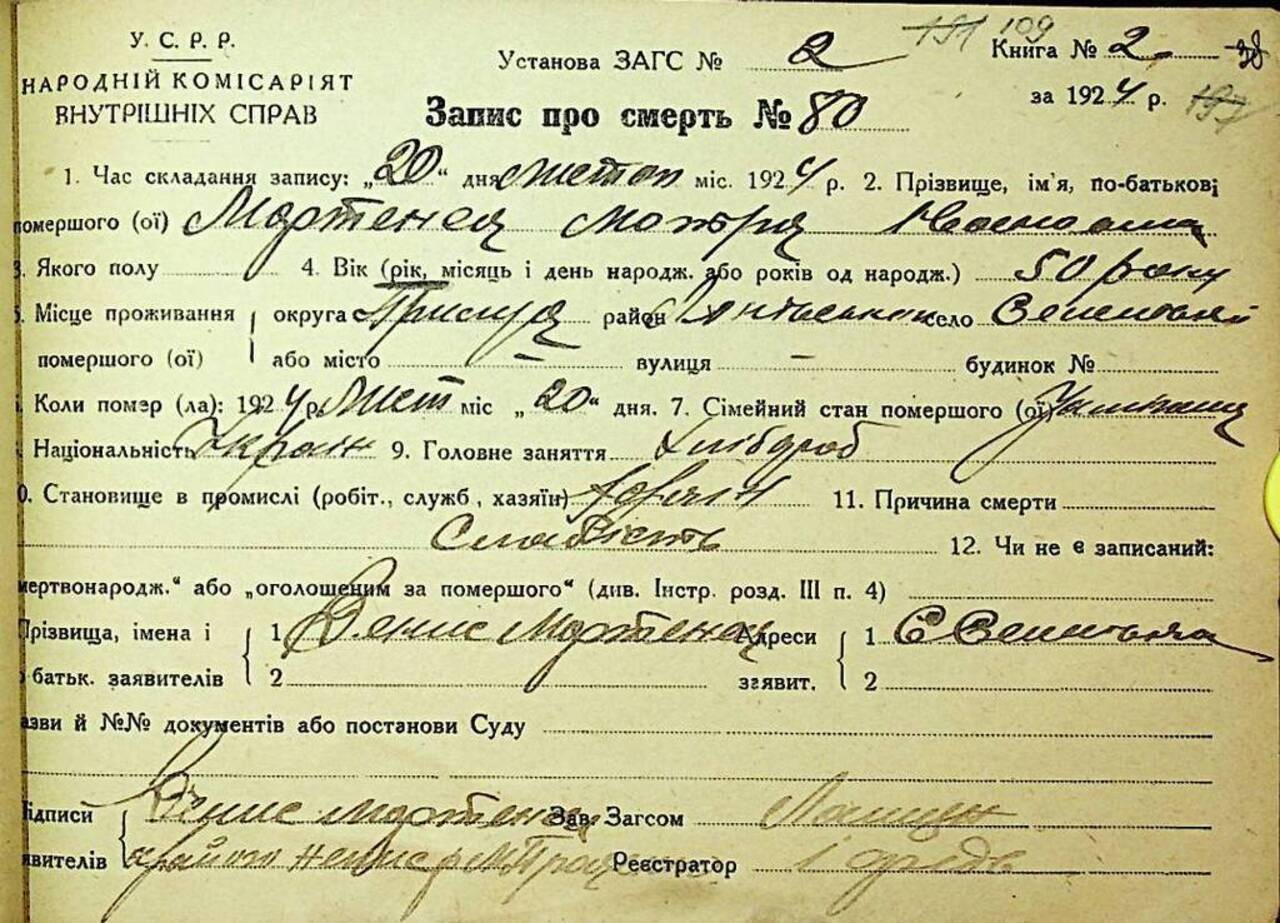 У. С. Р. Р.
НАРОДНІЙ КОМІСАРІЯТ
ВНУТРІШНІХ СПРАВ
Установа ЗАГС № 2
191 109
Книга № 2 38
за 1924 р. 197
Запис про смерть № 80
1. Час складання запису: „20“ дня листоп міс. 1924 р. 2. Прізвище, ім'я, по-батькові
помершого (ої) Мартенец Мотря
Якого полу 4. Вік (рік, місяць і день народж. або років од народж.) 50 року
Місце проживання округа район село
помершого (ої) або місто – вулиця – будинок №
Коли помер (ла): 1924 р. лист міс „20“ дня. 7. Сімейний стан помершого (ої)
Національність Україн 9. Головне заняття Хлібороб
0. Становище в промислі (робіт., служб., хазяїн) 11. Причина смерти
Слабість 12. Чи не є записаний:
мертвонародж.“ або „оголошеним за помершого“ (див. Інстр. розд. III п. 4)
Прізвища, імена і 1 Денис Мартенец Адреси 1
батьк. заявителів 2 заявит. 2
азви й №№ документів або постанови Суду
ідписи Денис Мартенец Зав. Загсом
явителів Реєстратор